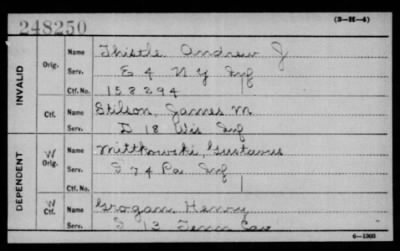 248250
(3-H-4)
INVALID
Orig.
Name Thistle Andrew J
Serv. E 4 N Y Inf
Ctf. No. 158294
Ctf.
Name Stilson, James M
Serv. D 18 Wis Inf
DEPENDENT
W
Orig.
Name Mittkowski, Gustavus
Serv. S 74 Pa Inf
Ctf. No.
W
Ctf.
Name Grogan, Henry
Serv. 13 Tenn Cav
6-1960